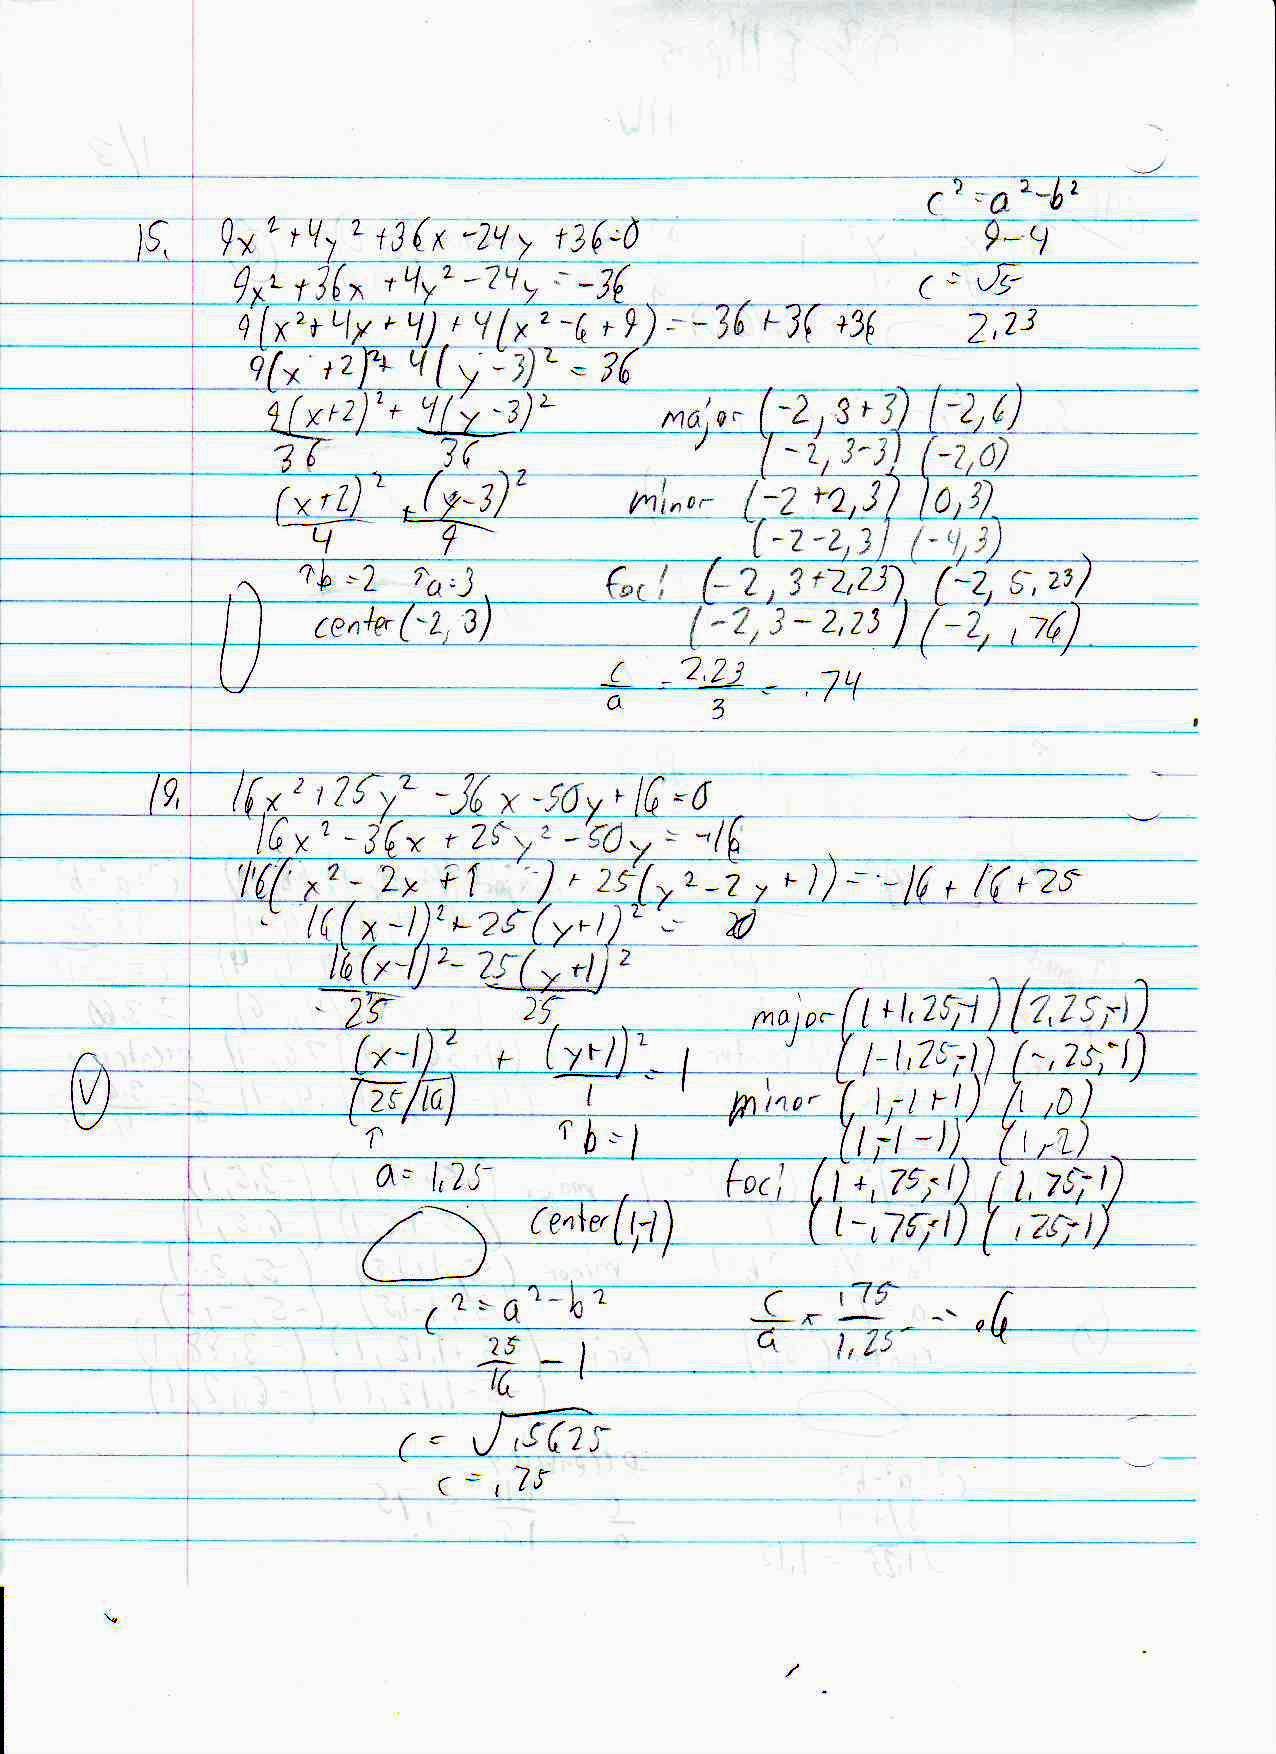 c² = a² - b²
15. 9x² + 4y² + 36x - 24y + 36 = 0
9 - 4
9x² + 36x + 4y² - 24y = -36
c = √5
9(x² + 4x + 4) + 4(x² - 6 + 9) = -36 + 36 + 36
2.23
9(x + 2)² + 4(y - 3)² = 36
9(x+2)² + 4(y-3)²
36 36
(x+2)² + (y-3)²
4 9
↑b = 2 ↑a = 3
center (-2, 3)
major (-2, 3+3) (-2, 6)
(-2, 3-3) (-2, 0)
minor (-2+2, 3) (0, 3)
(-2-2, 3) (-4, 3)
foci (-2, 3+2.23) (-2, 5.23)
(-2, 3-2.23) (-2, .76)
c/a = 2.23/3 = .74
19. 16x² + 25y² - 36x - 50y + 16 = 0
16x² - 36x + 25y² - 50y = -16
16(x² - 2x + 1) + 25(y² - 2y + 1) = -16 + 16 + 25
16(x-1)² + 25(y+1)² =
16(x-1)² - 25(y+1)²
25 25
(x-1)² + (y+1)² = 1
(25/16) 1
↑ ↑b = 1
a = 1.25
center (1,-1)
major (1+1.25,-1) (2.25,-1)
(1-1.25,-1) (-.25,-1)
minor (1,-1+1) (1,0)
(1,-1-1) (1,-2)
foci (1+.75,-1) (1.75,-1)
(1-.75,-1) (.25,-1)
c² = a² - b²
25/16 - 1
c = √.5625
c = .75
c/a = .75/1.25 = .6